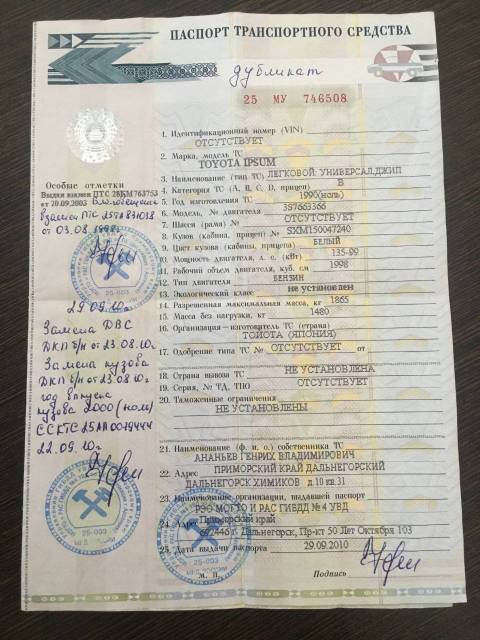 ПАСПОРТ ТРАНСПОРТНОГО СРЕДСТВА
дубликат
25 МУ 746508
1. Идентификационный номер (VIN)
ОТСУТСТВУЕТ
2. Марка, модель ТС
TOYOTA IPSUM
3. Наименование (тип ТС) ЛЕГКОВОЙ УНИВЕРСАЛ, ДЖИП
4. Категория ТС (A, B, C, D, прицеп) B
5. Год изготовления ТС 1990(ноль)
6. Модель, № двигателя 3S7663366
7. Шасси (рама) № ОТСУТСТВУЕТ
8. Кузов (кабина, прицеп) № SXM150047240
9. Цвет кузова (кабины, прицепа) БЕЛЫЙ
10. Мощность двигателя, л. с. (кВт) 135-99
11. Рабочий объем двигателя, куб. см 1998
12. Тип двигателя БЕНЗИН
13. Экологический класс не установлен
14. Разрешенная максимальная масса, кг 1865
15. Масса без нагрузки, кг 1480
16. Организация–изготовитель ТС (страна)
ТОЙОТА (ЯПОНИЯ)
17. Одобрение типа ТС № ОТСУТСТВУЕТ от
18. Страна вывоза ТС НЕ УСТАНОВЛЕНА
19. Серия, № ТД, ТПО ОТСУТСТВУЕТ
20. Таможенные ограничения
НЕ УСТАНОВЛЕНЫ
21. Наименование (ф. и. о.) собственника ТС
АНАНЬЕВ ГЕНРИХ ВЛАДИМИРОВИЧ
22. Адрес ПРИМОРСКИЙ КРАЙ ДАЛЬНЕГОРСКИЙ
ДАЛЬНЕГОРСК ХИМИКОВ д.10 кв.31
23. Наименование организации, выдавшей паспорт
РЭО МОГТО И РАС ГИБДД №4 УВД
24. Адрес Приморский край
692446 г. Дальнегорск, Пр-кт 50 Лет Октября 103
25. Дата выдачи паспорта 29.09.2010
М. П.
Подпись
Особые отметки
Выдан взамен ПТС 28КМ763753
от 20.09.2003 Благовещенск
взамен ПТС 25ТА831038
от 03.08.1998г
29.09.10г.
Замена ДВС
ДКП б/н от 23.08.10г.
Замена кузова
ДКП б/н от 23.08.10г
год выпуска
кузова 2000 (ноль)
ССКТС 25АА0019444
22.09.10г.
25-003
25-003